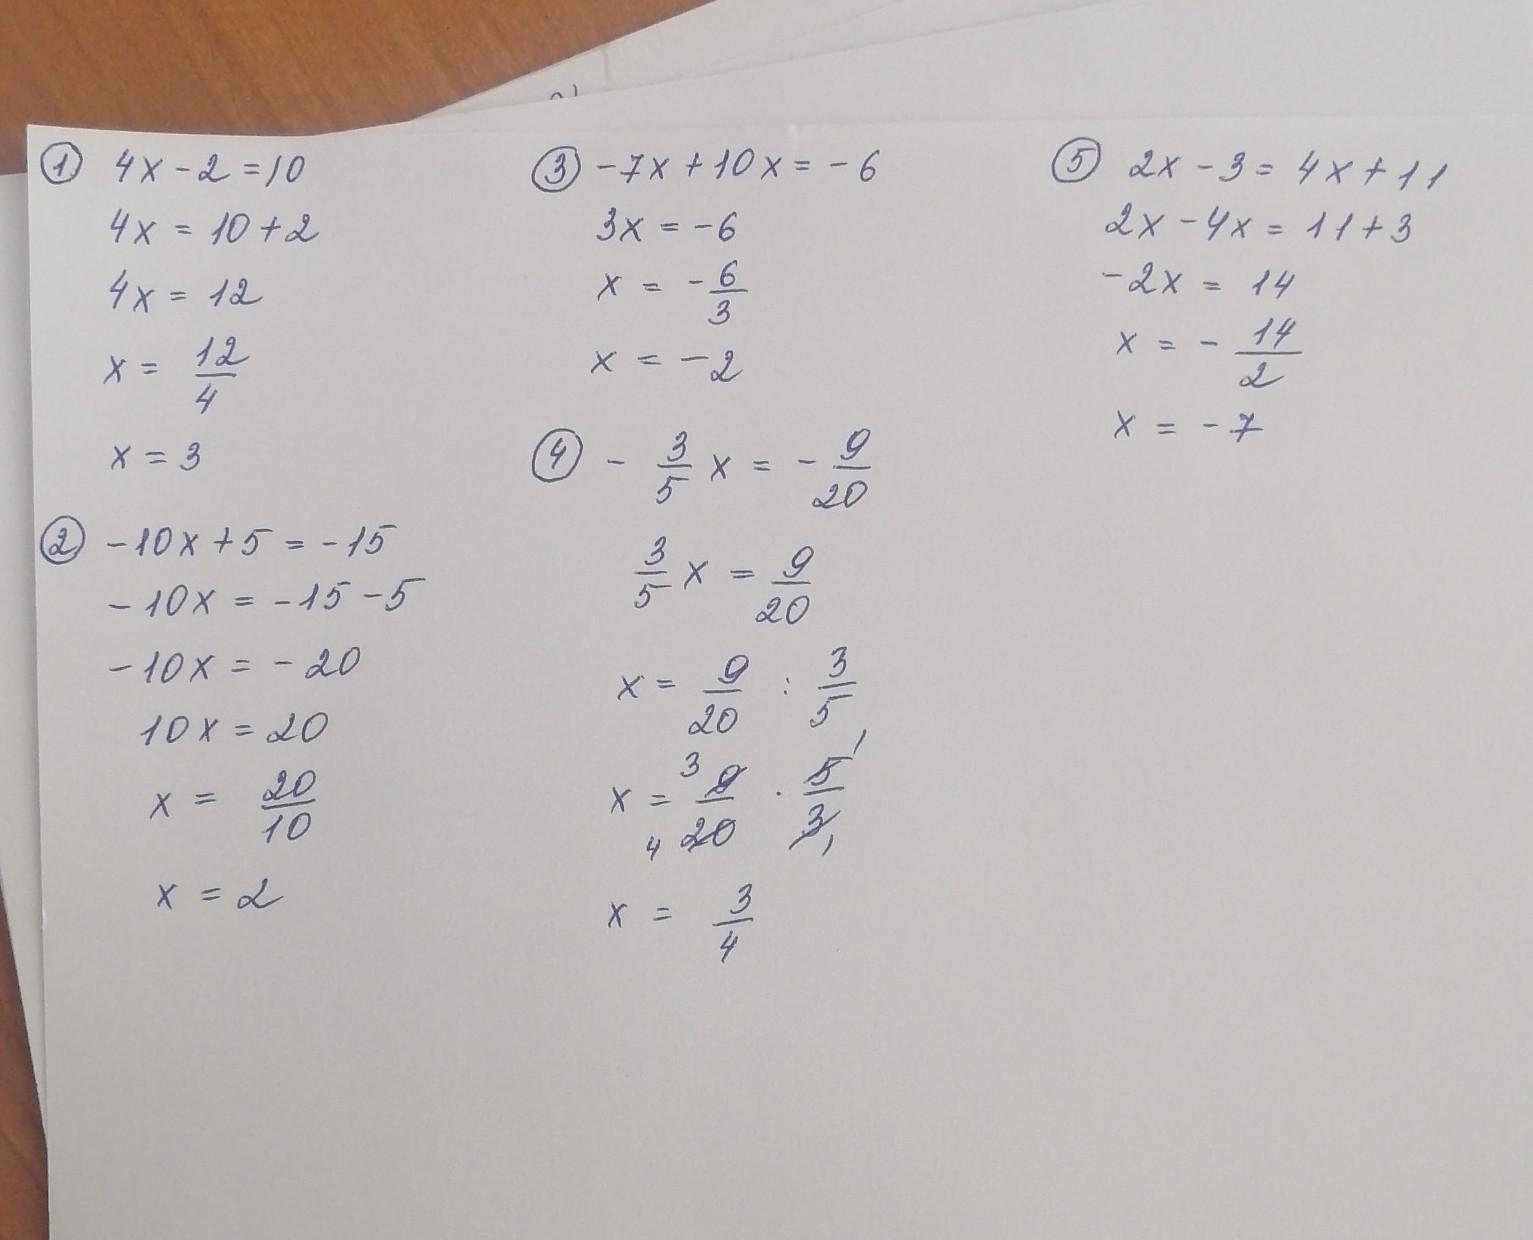 ① 4x - 2 = 10
4x = 10 + 2
4x = 12
x = 12/4
x = 3
② -10x + 5 = -15
-10x = -15 - 5
-10x = -20
10x = 20
x = 20/10
x = 2
③ -7x + 10x = -6
3x = -6
x = -6/3
x = -2
④ -3/5 x = -9/20
3/5 x = 9/20
x = 9/20 : 3/5
x = ³9/₄20 · 5¹/3₁
x = 3/4
⑤ 2x - 3 = 4x + 11
2x - 4x = 11 + 3
-2x = 14
x = -14/2
x = -7